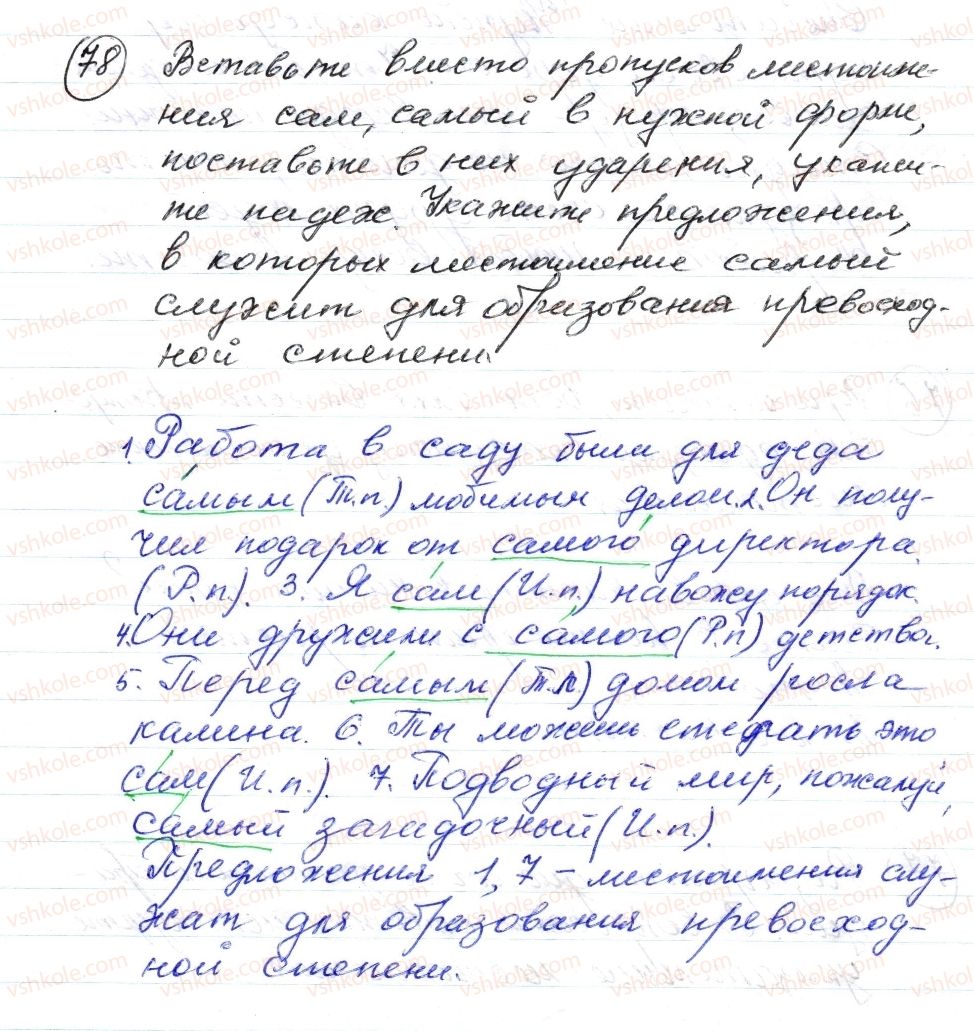 78 Вставьте вместо пропусков местоиме-
ния сам, самый в нужной форме,
поставьте в них ударения, укажи-
те падеж. Укажите предложения,
в которых местоимение самый
служит для образования превосход-
ной степени.
1. Работа в саду была для деда
са́мым (Т.п.) любимым делом. 2. Он полу-
чил подарок от самого́ директора
(Р.п.). 3. Я са́м (И.п.) навожу порядок.
4. Они дружили с са́мого (Р.п) детства.
5. Перед са́мым (Т.п.) домом росла
калина. 6. Ты можешь сделать это
са́м (И.п.). 7. Подводный мир, пожалуй,
са́мый загадочный (И.п.).
Предложения 1, 7 – местоимения слу-
жат для образования превосход-
ной степени.